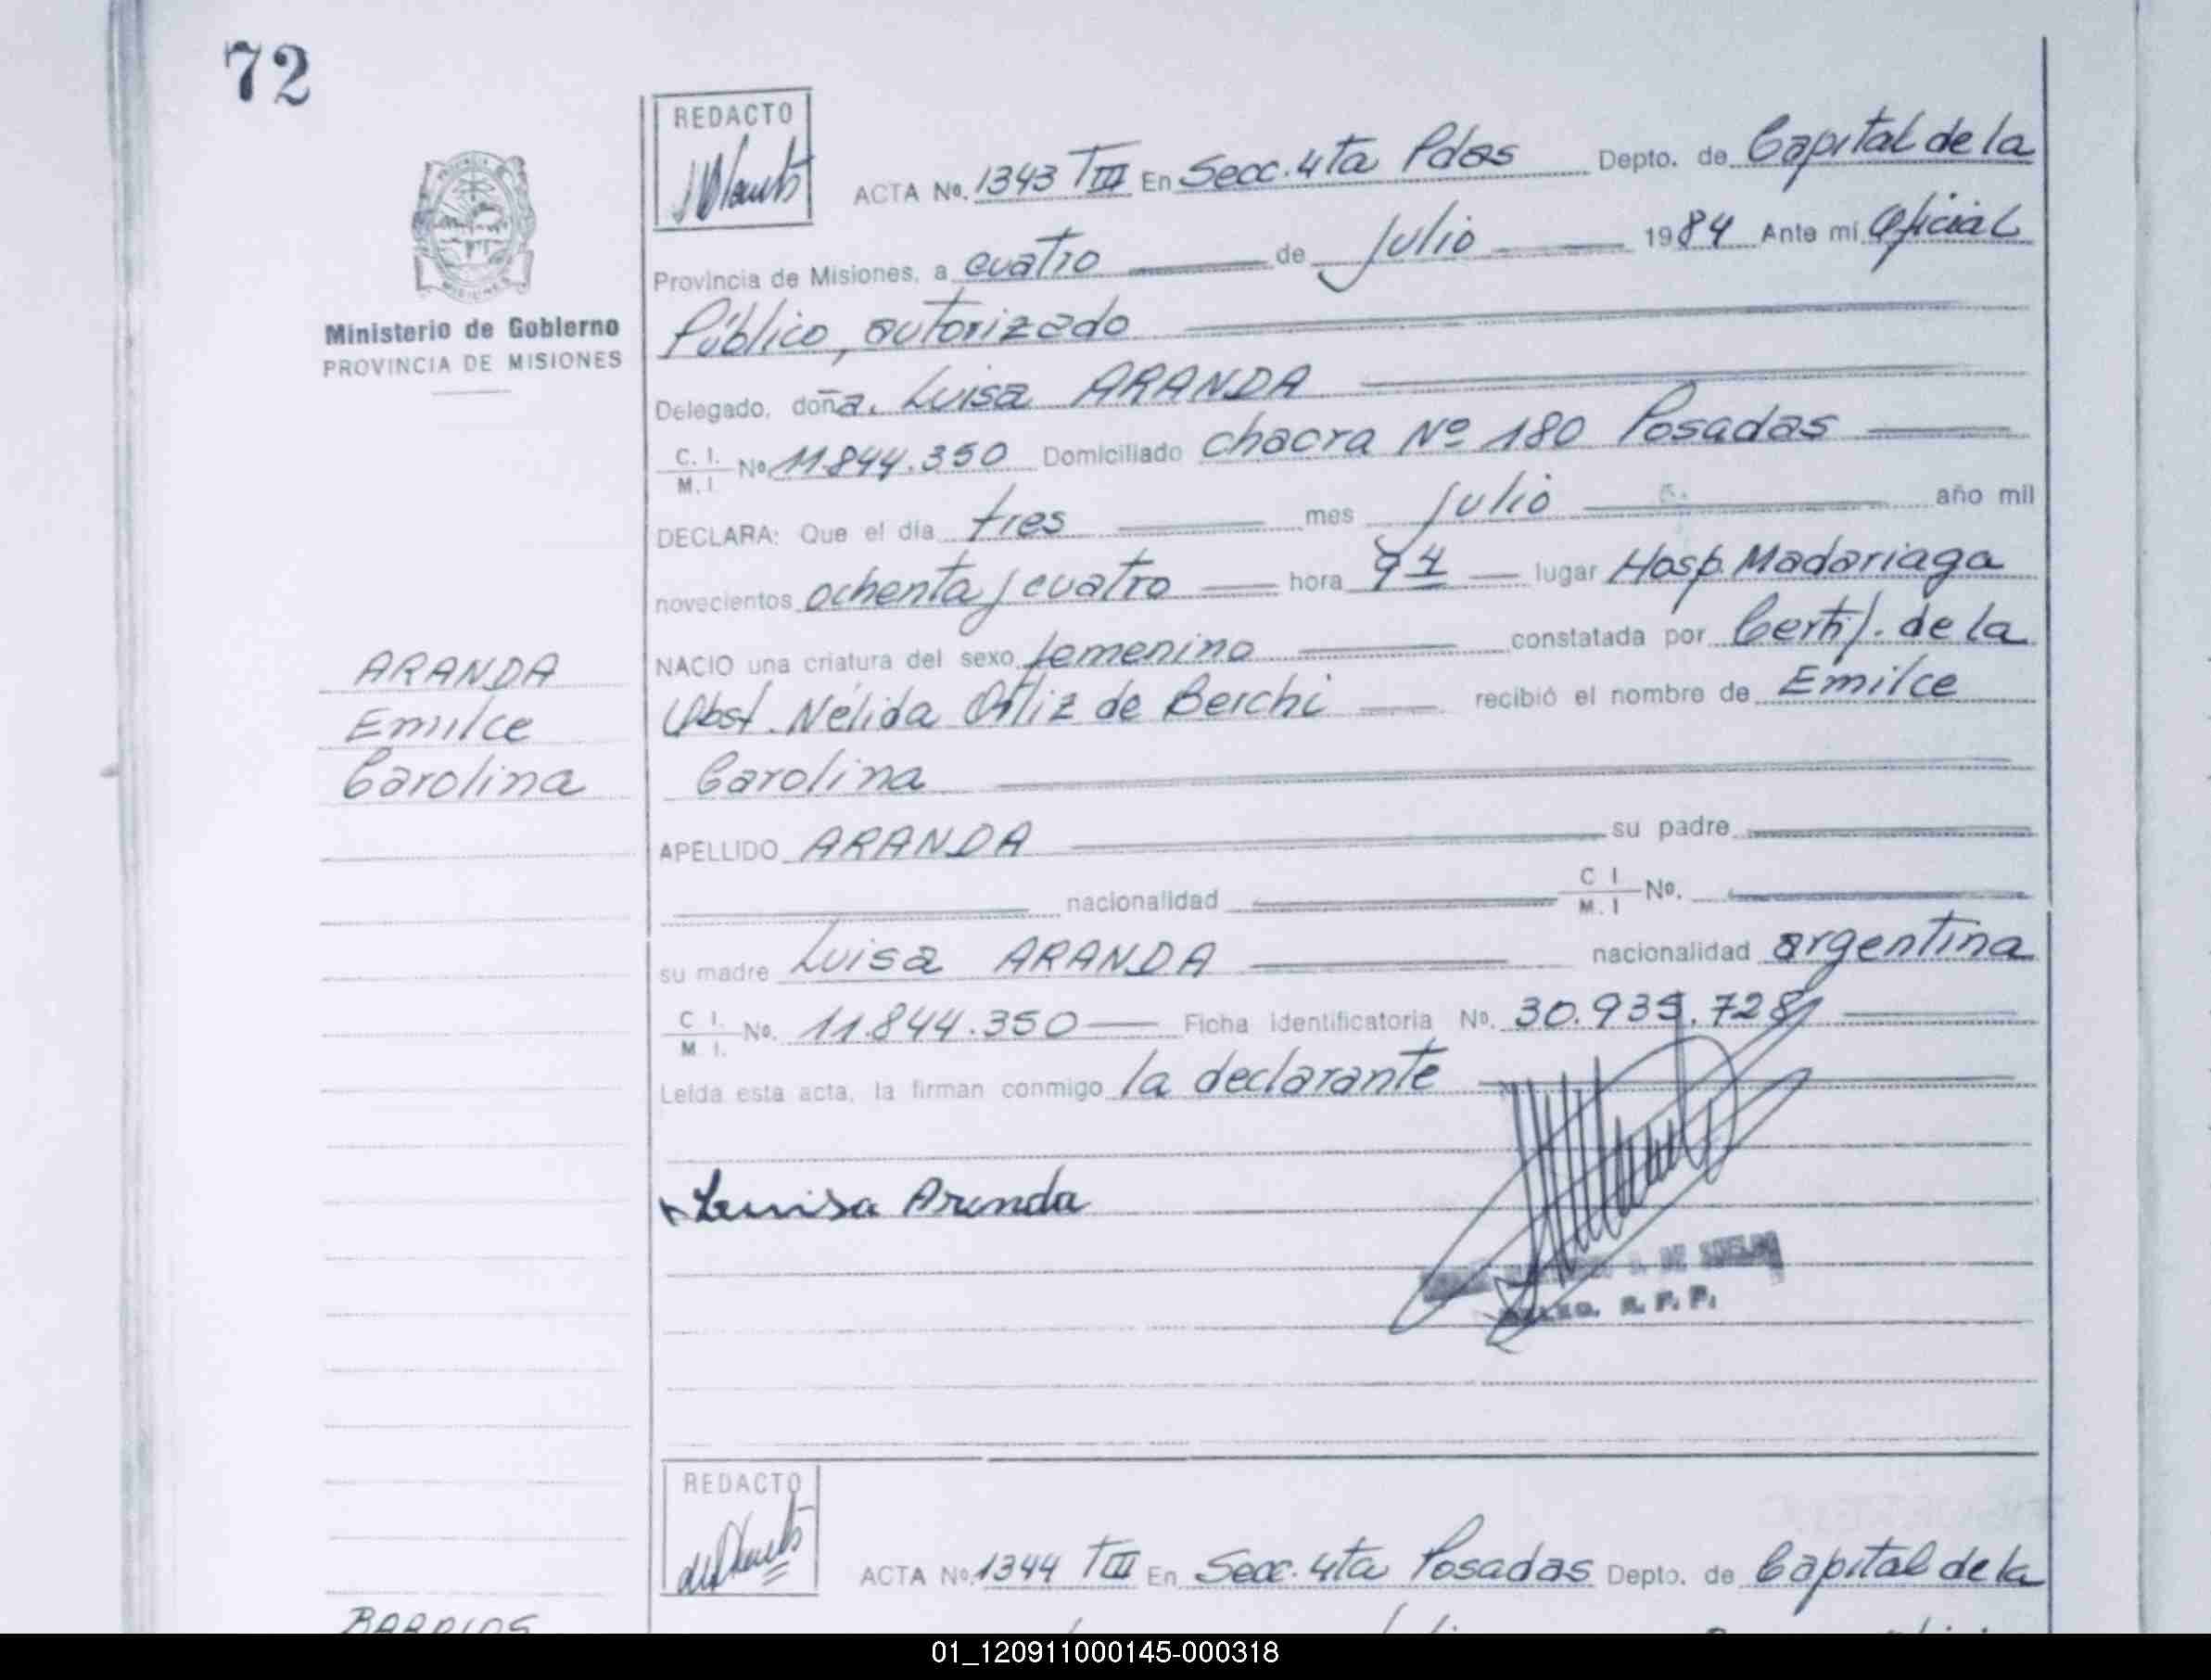 72
REDACTO
ACTA No. 1343 TIII En Secc. 4ta Pdas Depto. de Capital de la
Provincia de Misiones, a cuatro de Julio 1984 Ante mi Oficial
Público, autorizado
Ministerio de Gobierno
PROVINCIA DE MISIONES
Delegado, doña. Luisa ARANDA
C. I. M. I. No 11.844.350 Domiciliado chacra Nº 180 Posadas
DECLARA: Que el día tres mes Julio año mil
novecientos ochenta y cuatro hora lugar Hosp. Madariaga
NACIO una criatura del sexo femenino constatada por Certif. de la
Obst. Nélida Ortiz de Berchi recibió el nombre de Emilce
Carolina
ARANDA
Emilce
Carolina
APELLIDO ARANDA su padre
nacionalidad C I M. I No.
su madre Luisa ARANDA nacionalidad argentina
C I. M I. No. 11.844.350 Ficha identificatoria No. 30.935.728
Leída esta acta, la firman conmigo la declarante
Luisa Aranda
DE
R. P. P.
REDACTO
ACTA No. 1344 TIII En Secc. 4ta Posadas Depto. de Capital de la
BARRIOS
01_120911000145-000318